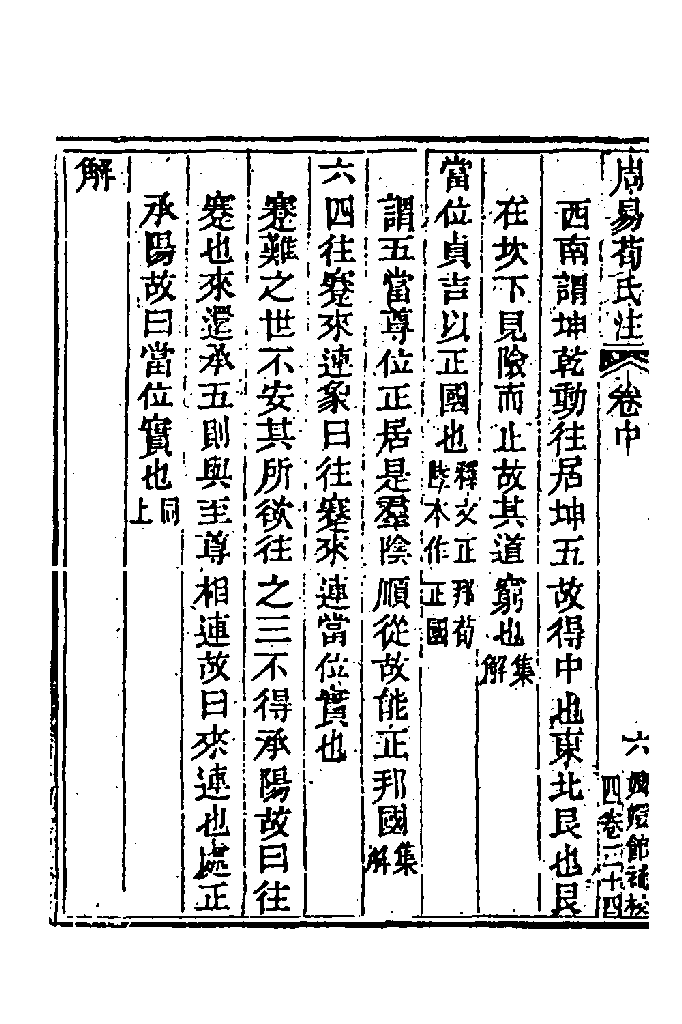 周易荀氏注 卷中 六 嫏嬛館補校 四卷三十四
西南謂坤乾動往居坤五故得中也東北艮也艮
在坎下見險而止故其道窮也集解
當位貞吉以正國也釋文正邦荀陸本作正國
謂五當尊位正居是羣陰順從故能正邦國集解
六四往蹇來連象曰往蹇來連當位實也
蹇難之世不安其所欲往之三不得承陽故曰往
蹇也來還承五則與至尊相連故曰來連也處正
承陽故曰當位實也同上
解